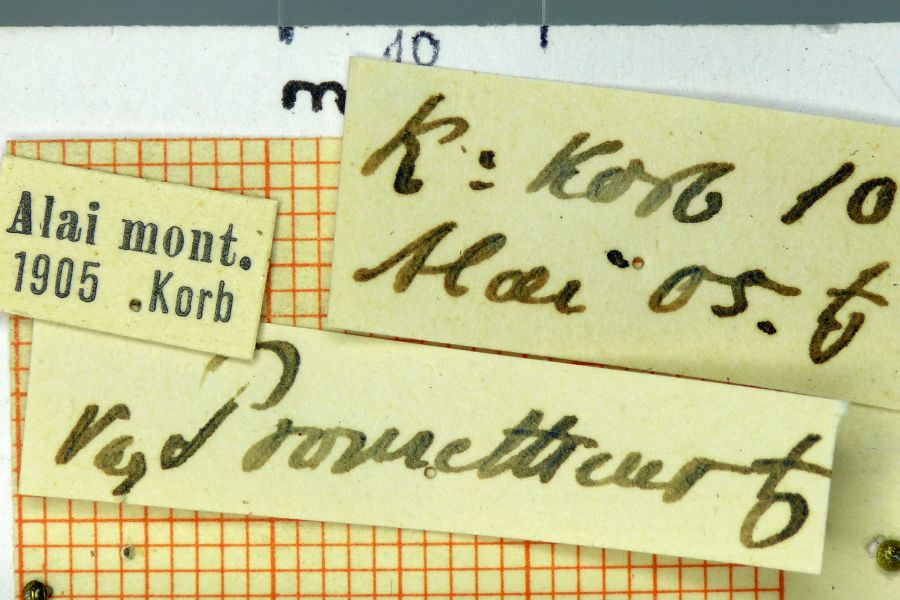 10
m
K: Korb 10
Alai 05. b
Alai mont.
1905 . Korb
Prometheus b